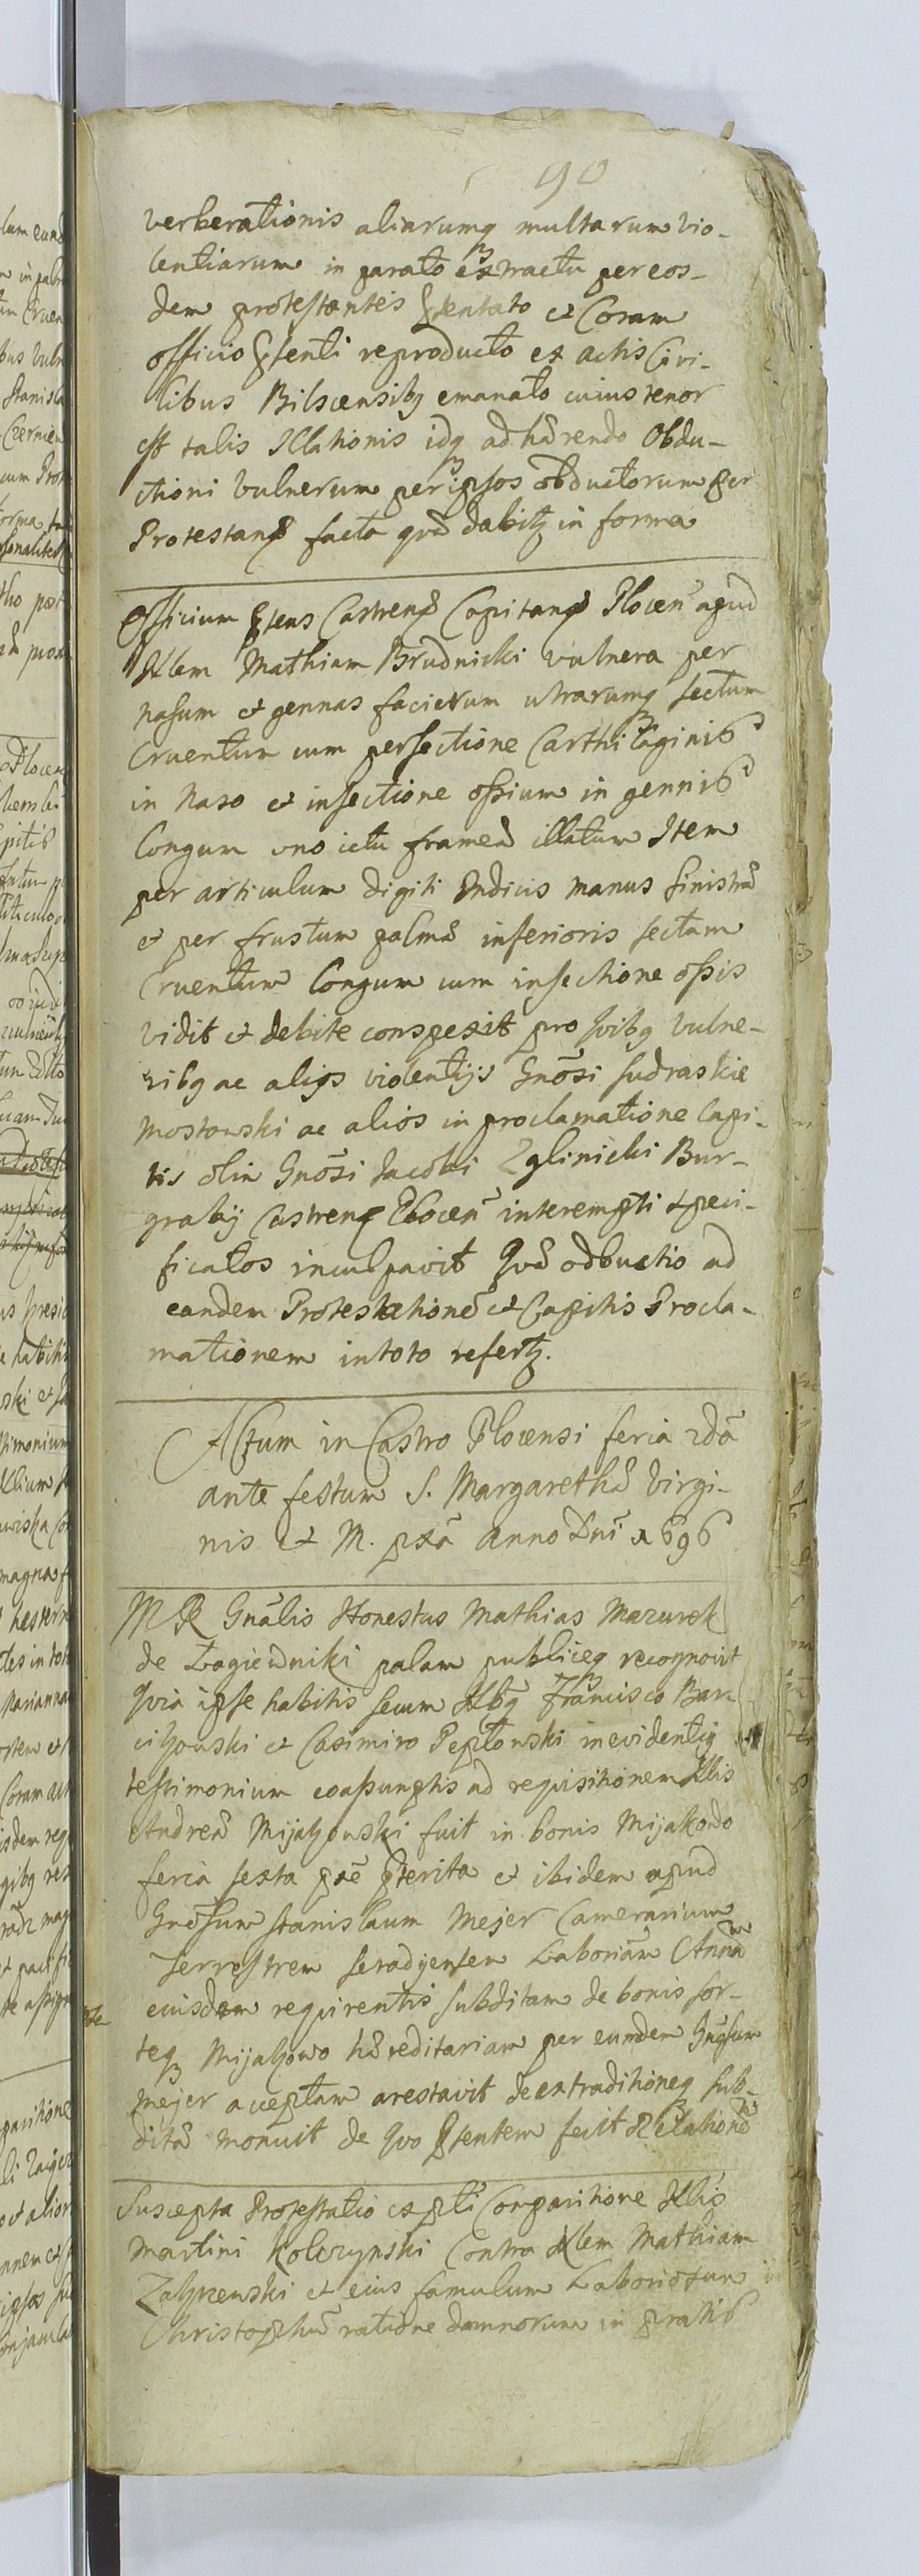 90
verberationis aliarumq multarum vio-
lentiarum in parato extractu per eos-
dem protestantes Prsentato et Coram
officio Prsenti reproducto ex actis Civi-
libus Bilscensibq emanato cuius tenor
est talis Illationis idq adhærendo Obdu-
ctioni Vulnerum per ipsos obductorum per
Protestans facta qvæ dabitz in forma
Officium Prsens Castrens Capitans Plocen apud
Nlem Mathiam Brudnicki vulnera per
Nasum et gennas facierum utrarumq sectum
Cruentum cum persectione Carthilaginis
in Naso et insectione ossium in gennis
Longum uno ictu frameæ illatum Item
per articulum digiti Indicis manus sinistræ
et per frustum palmæ inferioris sectam
Cruentum Longum cum insectione ossis
vidit et debite conspexit pro qvibq Vulne-
ribq ac alijs violentijs Gnosi Sudraskie
Mostowski ac alios in proclamatione Capi-
tis olim Gnosi Jacobi Zglinicki Bur-
grabij Castrens Plocen interempti speci-
ficatos inculpavit Qvæ odbuctio ad
eandem Protestationē et Capitis Procla-
mationem in toto refertz.
Actum in Castro Plocensi feria 2dā
ante festum S. Margarethæ Virgi-
nis et M. pxā Anno Dnī 1696
M R Gnālis Honestus Mathias Mazurek
de Łagiewniki palam publiceq recognovit
Qvia ipse habitis secum Nlbq Francisco Bar-
cikowski et Casimiro Pepłowski in evidentiq
testimonium coassumptis ad reqvisitionem Nlis
Andreæ Mijakowski fuit in bonis Mijakowo
feria sexta pxē Prterita et ibidem apud
Gnosum Stanislaum Mejer Camerarium
Terrestrem Seradijensem Laboriam Annam
eiusdem reqvirentis subditam de bonis sor-
teq Mijakowo hæreditariam per eundem Gnosum
Mejer acceptam arestavit de extraditioneq sub-
ditæ monuit de qvo Prsentem fecit Relationē
Suscepta Protestatio ex pti Comparitione Nlis
Martini Kolczynski Contra Nlem Mathiam
Zakrzewski et eius famulum Laboriosum
Christophū ratione damnorum in pratis